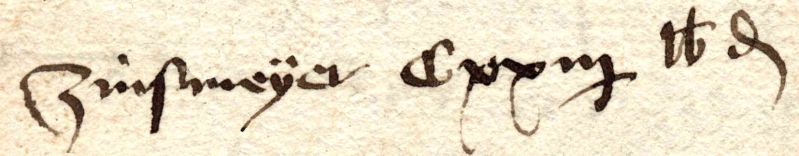 Zinsmeÿer Cxxiij lb d